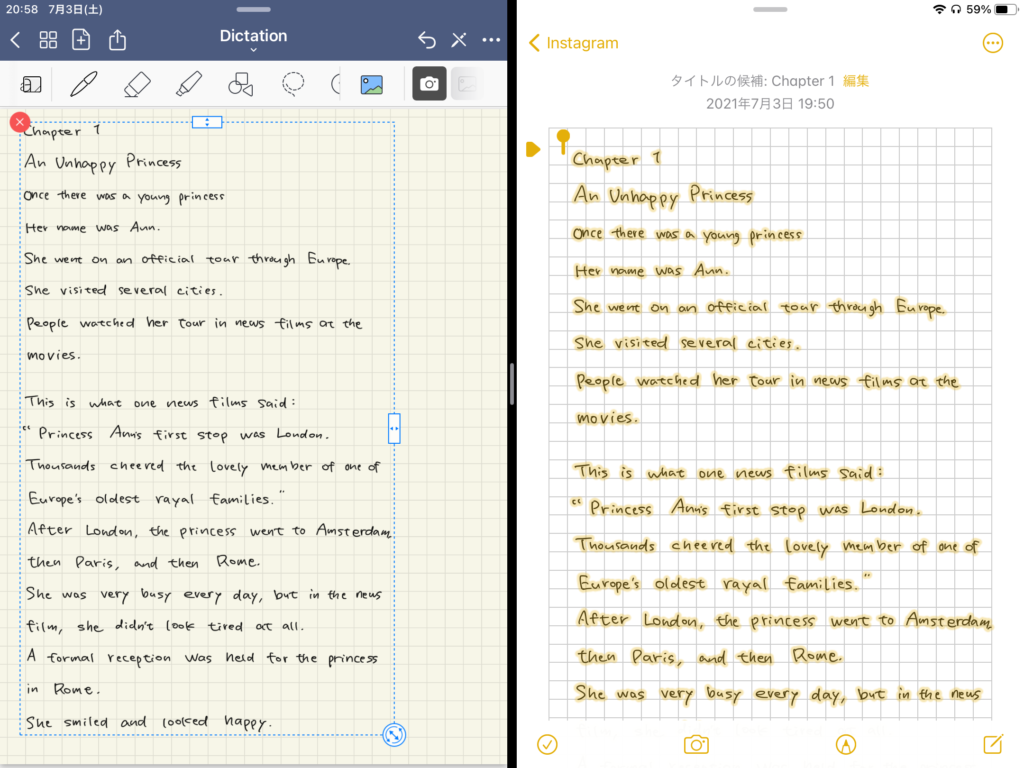 20:58 7月3日(土)
Dictation
Chapter 1
An Unhappy Princess
Once there was a young princess
Her name was Ann.
She went on an official tour through Europe.
She visited several cities.
People watched her tour in news films at the
movies.
This is what one news films said:
“Princess Ann's first stop was London.
Thousands cheered the lovely member of one of
Europe's oldest rayal families.”
After London, the princess went to Amsterdam
then Paris, and then Rome.
She was very busy every day, but in the news
film, she didn't look tired at all.
A formal reception was held for the princess
in Rome.
She smiled and looked happy.
59%
Instagram
タイトルの候補: Chapter 1 編集
2021年7月3日 19:50
Chapter 1
An Unhappy Princess
Once there was a young princess
Her name was Ann.
She went on an official tour through Europe.
She visited several cities.
People watched her tour in news films at the
movies.
This is what one news films said:
“Princess Ann's first stop was London.
Thousands cheered the lovely member of one of
Europe's oldest rayal families.”
After London, the princess went to Amsterdam
then Paris, and then Rome.
She was very busy every day, but in the news